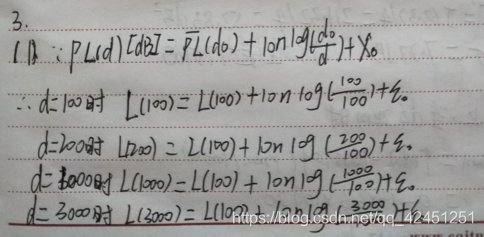 3.
(1) ∵ PL(d)[dB] = P̄L(d₀) + 10n log(d₀/d) + X₀
∴ d=100时 L(100) = L(100) + 10n log(100/100) + ε₀
d=200时 L(200) = L(100) + 10n log(200/100) + ε₀
d=1000时 L(1000) = L(100) + 10n log(1000/100) + ε₀
d=3000时 L(3000) = L(100) + 10n log(3000/100) + ε₀
https://blog.csdn.net/qq_42451251